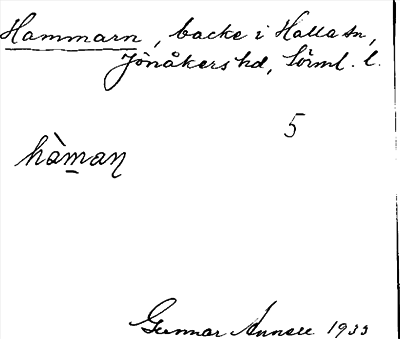 Hammarn, backe i Halla sn,
Jönåkers hd, Sörml. l.
5
hàman
Gunnar 1933